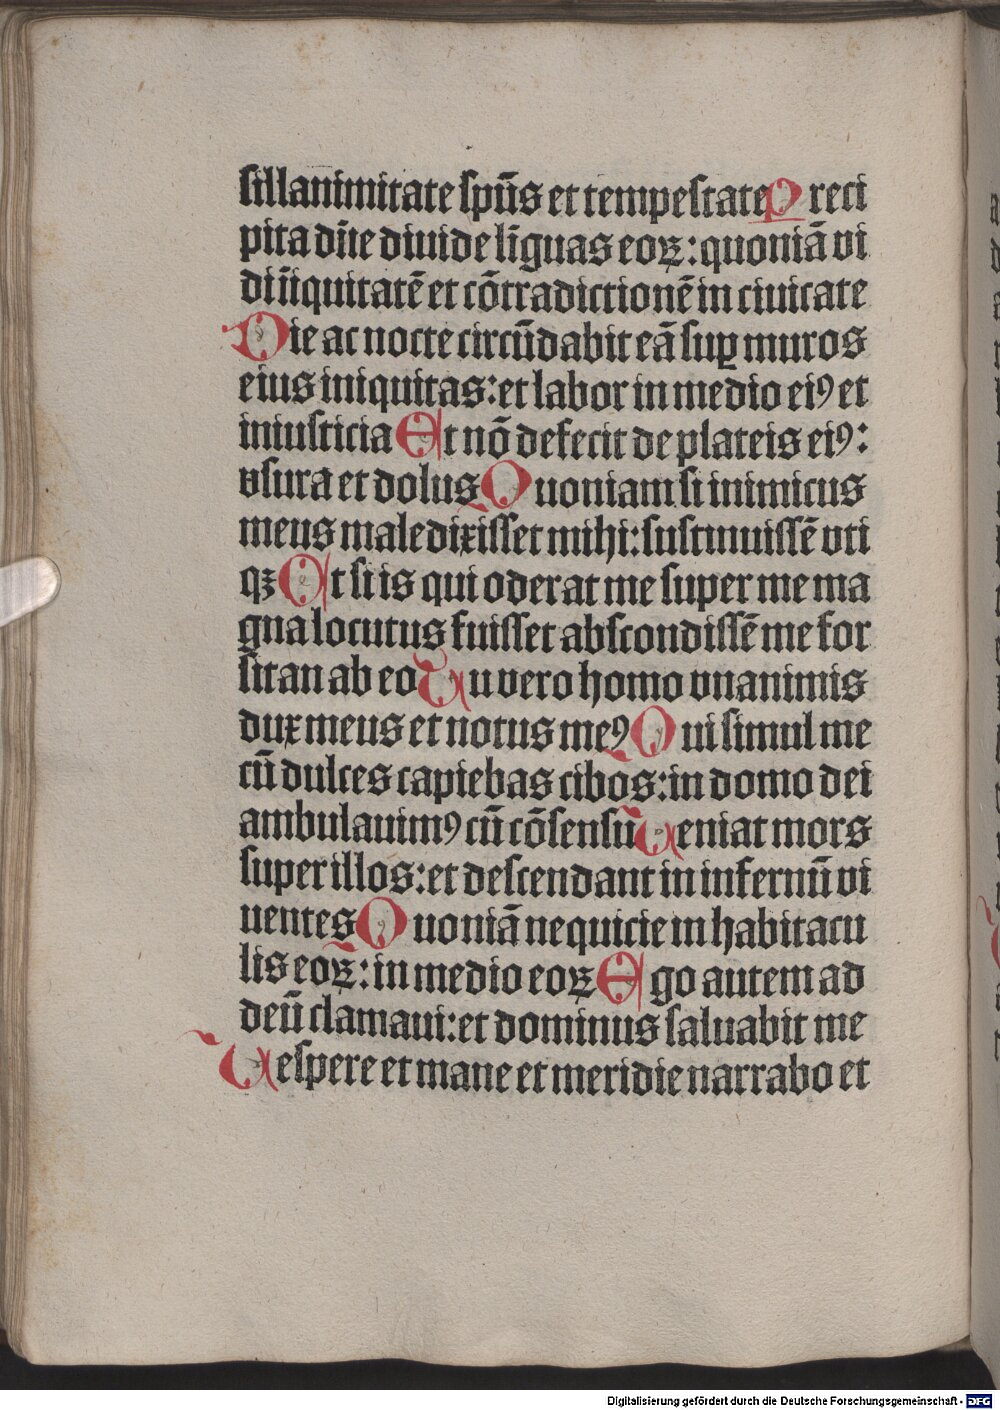 sillanimitate spūs et tempestate Preci
pita dn̄e diuide līguas eoꝝ: quoniā vi
di īiquitatē et cōtradictionē in ciuitate
Die ac nocte circūdabit eā suꝑ muros
eius iniquitas: et labor in medio eiꝰ et
iniusticia Et nō defecit de plateis eiꝰ:
vsura et dolus Quoniam si inimicus
meus maledixisset mihi: sustinuissē vti
qꝫ Et si is qui oderat me super me ma
gna locutus fuisset abscondissē me for
sitan ab eo Tu vero homo vnanimis
dux meus et notus meꝰ Qui simul me
cū dulces capiebas cibos: in domo dei
ambulauimꝰ cū cōsensu Ueniat mors
super illos: et descendant in infernū vi
uentes Quoniā nequicie in habitacu
lis eoꝝ: in medio eoꝝ Ego autem ad
deū clamaui: et dominus saluabit me
Uespere et mane et meridie narrabo et
Digitalisierung gefördert durch die Deutsche Forschungsgemeinschaft - DFG